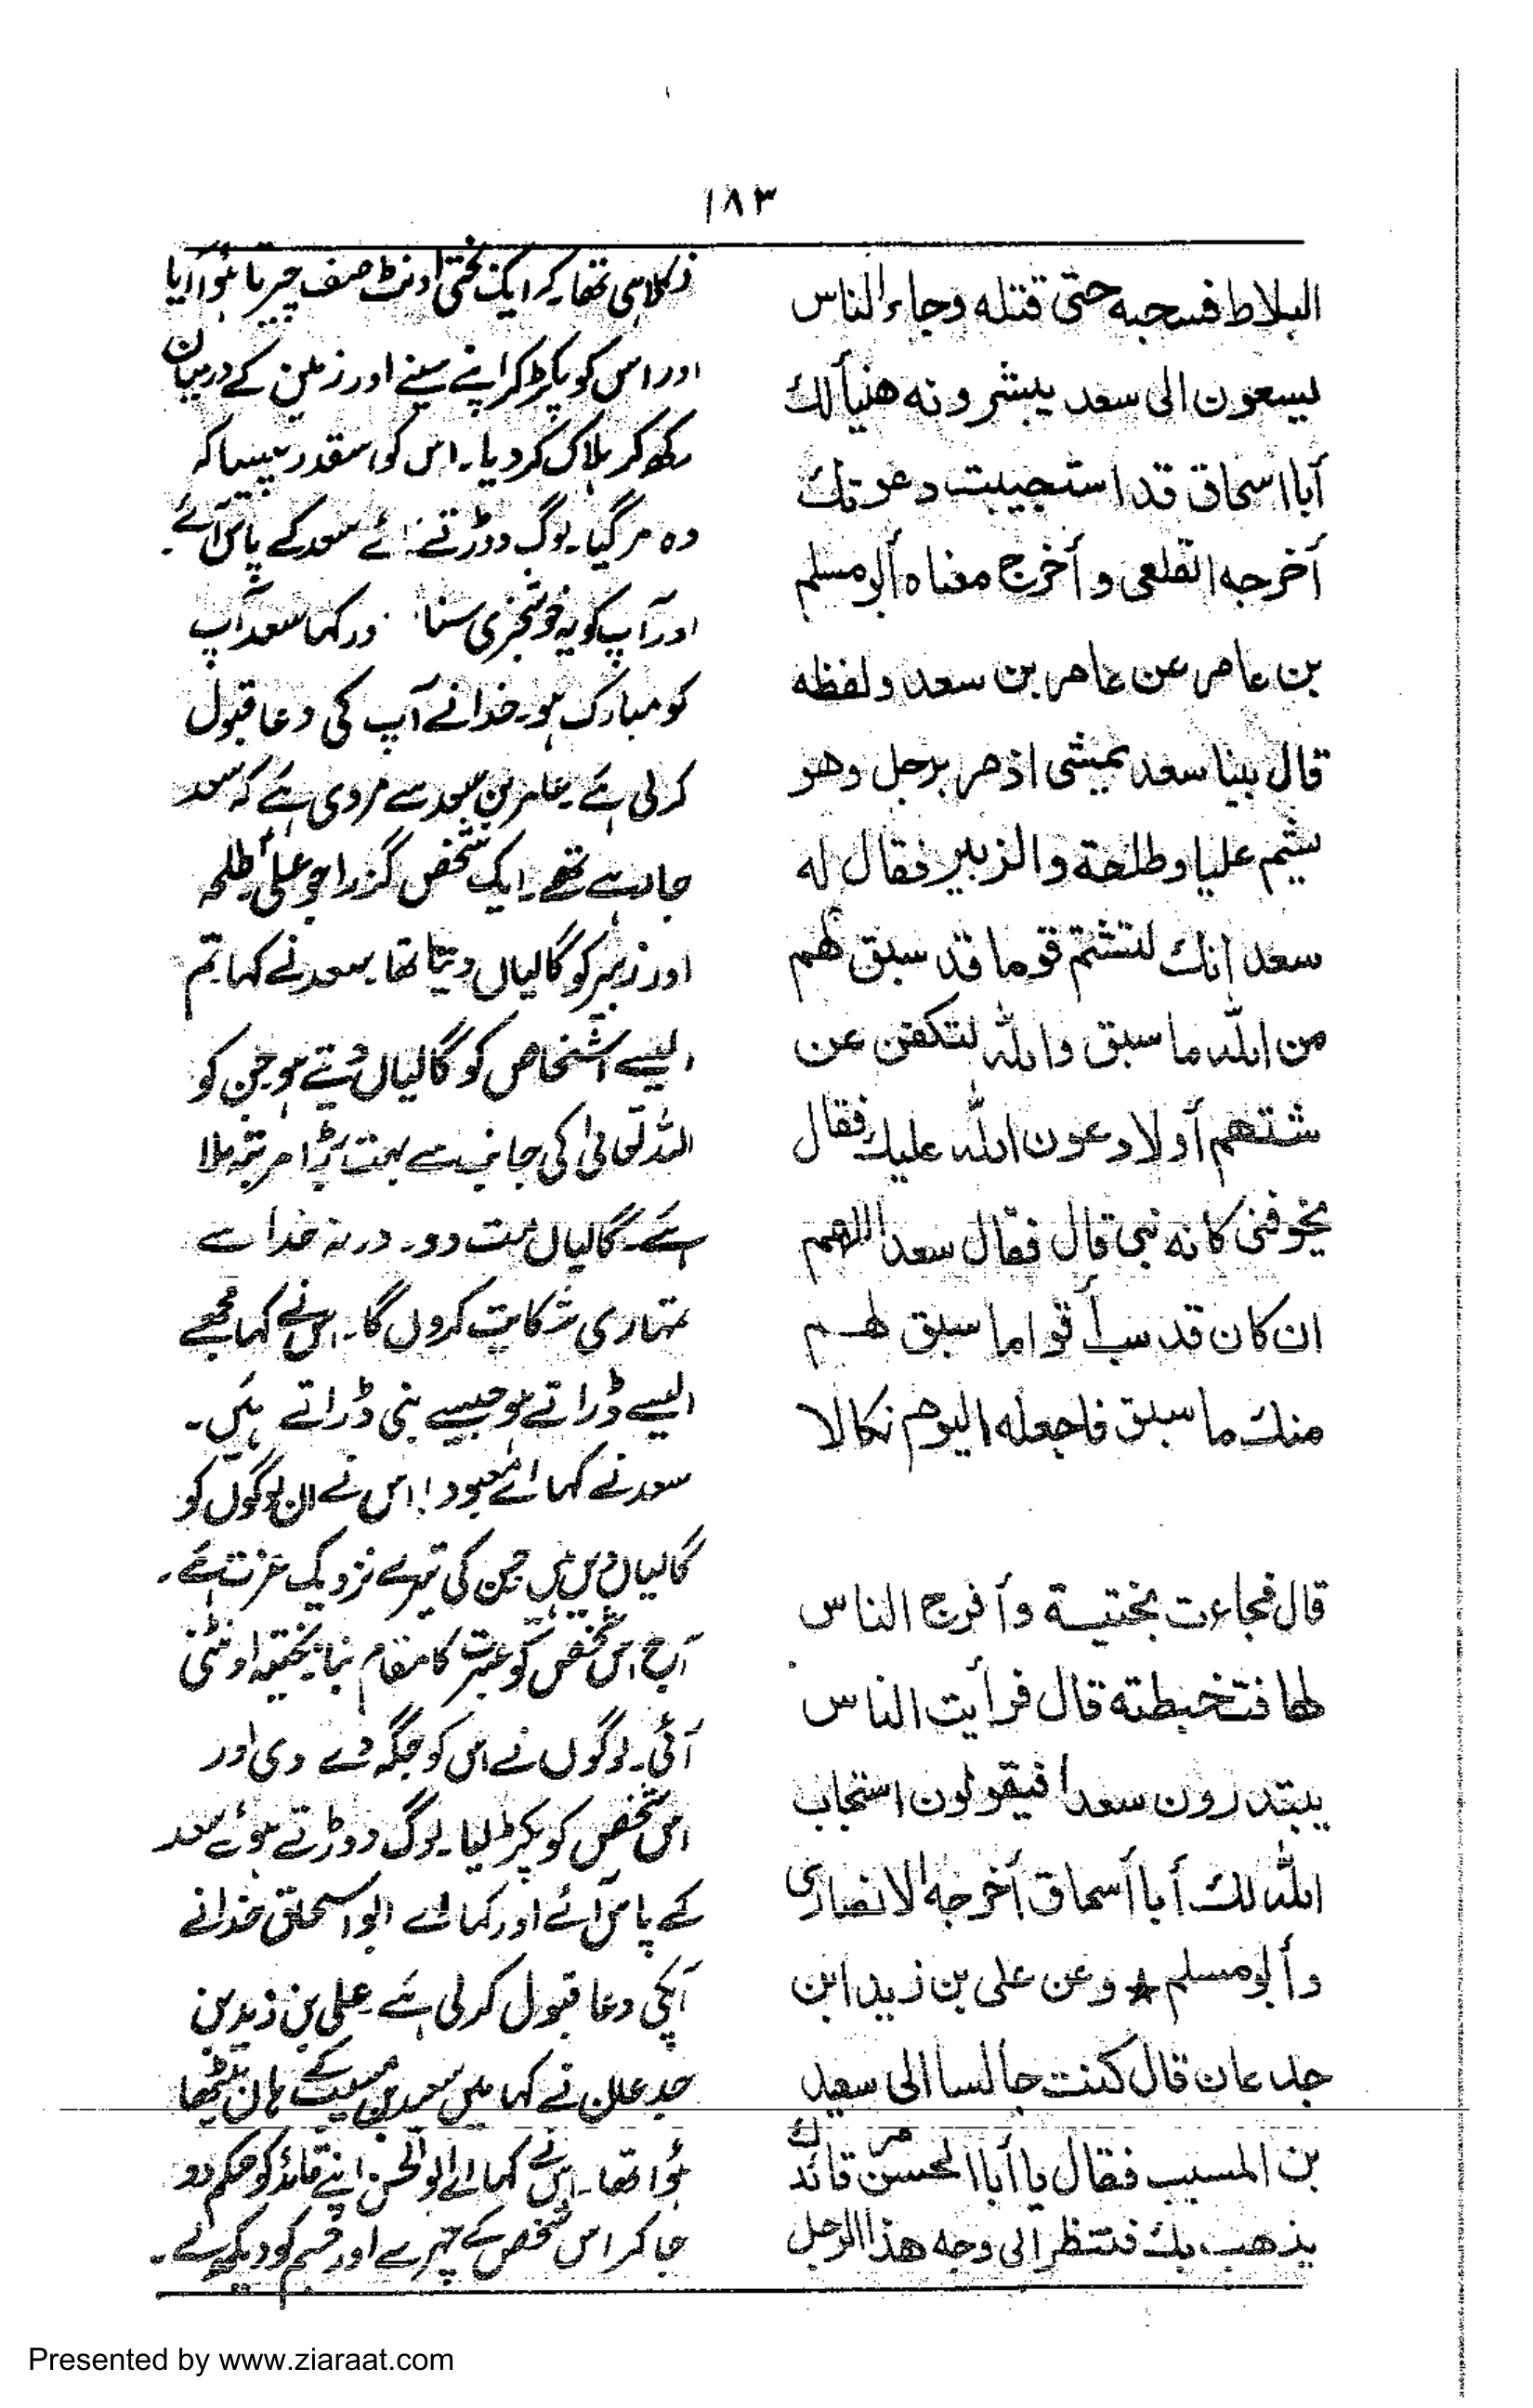 ۱۸۳
البلاط فسحبه حتى قتله وجاء الناس
يسعون الى سعد يبشرونه هنيأ لك
أبا اسحاق قد استجيبت دعوتك
أخرجه القلعى و أخرج معناه أبو مسلم
بن عامر عن عامر بن سعد و لفظه
قال بينا سعد يمشى اذ مر برجل وهو
يشتم عليا وطلحة والزبير فقال له
سعد انك لتشتم قوما قد سبق لهم
من الله ما سبق والله لتكفن عن
شتهم أو لادعون الله عليك فقال
يخوفنى كانه نبى قال فقال سعد اللهم
ان كان قد سبأ قواما سبق لهم
منك ما سبق فاجعله اليوم نكالا
قال فجاءت بختية وأفرج الناس
لها فتخبطته قال فرأيت الناس
يبتدرون سعدا فيقولون استجاب
الله لك أبا أسحاق أخرجه الانصارى
وأبو مسلم ★ وعن على بن زيد ابن
جدعان قال كنت جالسا الى سعيد
بن المسيب فقال يا أبا الحسن مر قائدك
يذهب بك فتنظر الى وجه هذا الرجل
نکلا ہی تھا کہ ایک بختی اونٹ صف چیرتا ہوا آیا
اور اس کو پکڑ کر اپنے سینے اور زمین کے درمیان
رکھ کر ہلاک کر دیا۔ اس کو اسقدر پیسا کہ
وہ مر گیا۔ لوگ دوڑتے ئے سعد کے پاس آئے۔
اور آپ کو یہ خوشخبری سنا ور کہا سعد آپ
کو مبارک ہو۔ خدا نے آپ کی دعا قبول
کر لی ہے۔ عامر بن سعد سے مروی ہے کہ سعد
جا رہے تھے۔ ایک شخص گزرا جو علی، طلحہ
اور زبیر کو گالیاں دیتا تھا۔ سعد نے کہا۔ تم
ایسے اشخاص کو گالیاں دیتے ہو جن کو
اللہ تعالیٰ کی جانب سے بہت بڑا مرتبہ ملا
ہے۔ گالیاں مت دو۔ ورنہ خدا سے
تمہاری شکایت کروں گا۔ اس نے کہا مجھے
ایسے ڈراتے ہو جیسے نبی ڈراتے ہیں۔
سعد نے کہا اے معبود! اس نے ان لوگوں کو
گالیاں دیں ہیں جن کی تیرے نزدیک عزت ہے۔
آج اس شخص کو عبرت کا مقام بنا۔ بختیہ اونٹنی
آئی۔ لوگوں نے اس کو جگہ دے دی اور
اس شخص کو پکڑ لیا۔ لوگ دوڑتے ہوئے سعد
کے پاس آئے اور کہا اے ابو اسحٰق خدا نے
آپکی دعا قبول کر لی ہے۔ علی بن زید بن
جدعان نے کہا میں سعید بن مسیب کے ہاں بیٹھا
ہوا تھا۔ اس نے کہا اے ابو الحسن اپنے قائد کو حکم دو
جا کر اس شخص کے چہرے اور جسم کو دیکھ لے۔
Presented by www.ziaraat.com